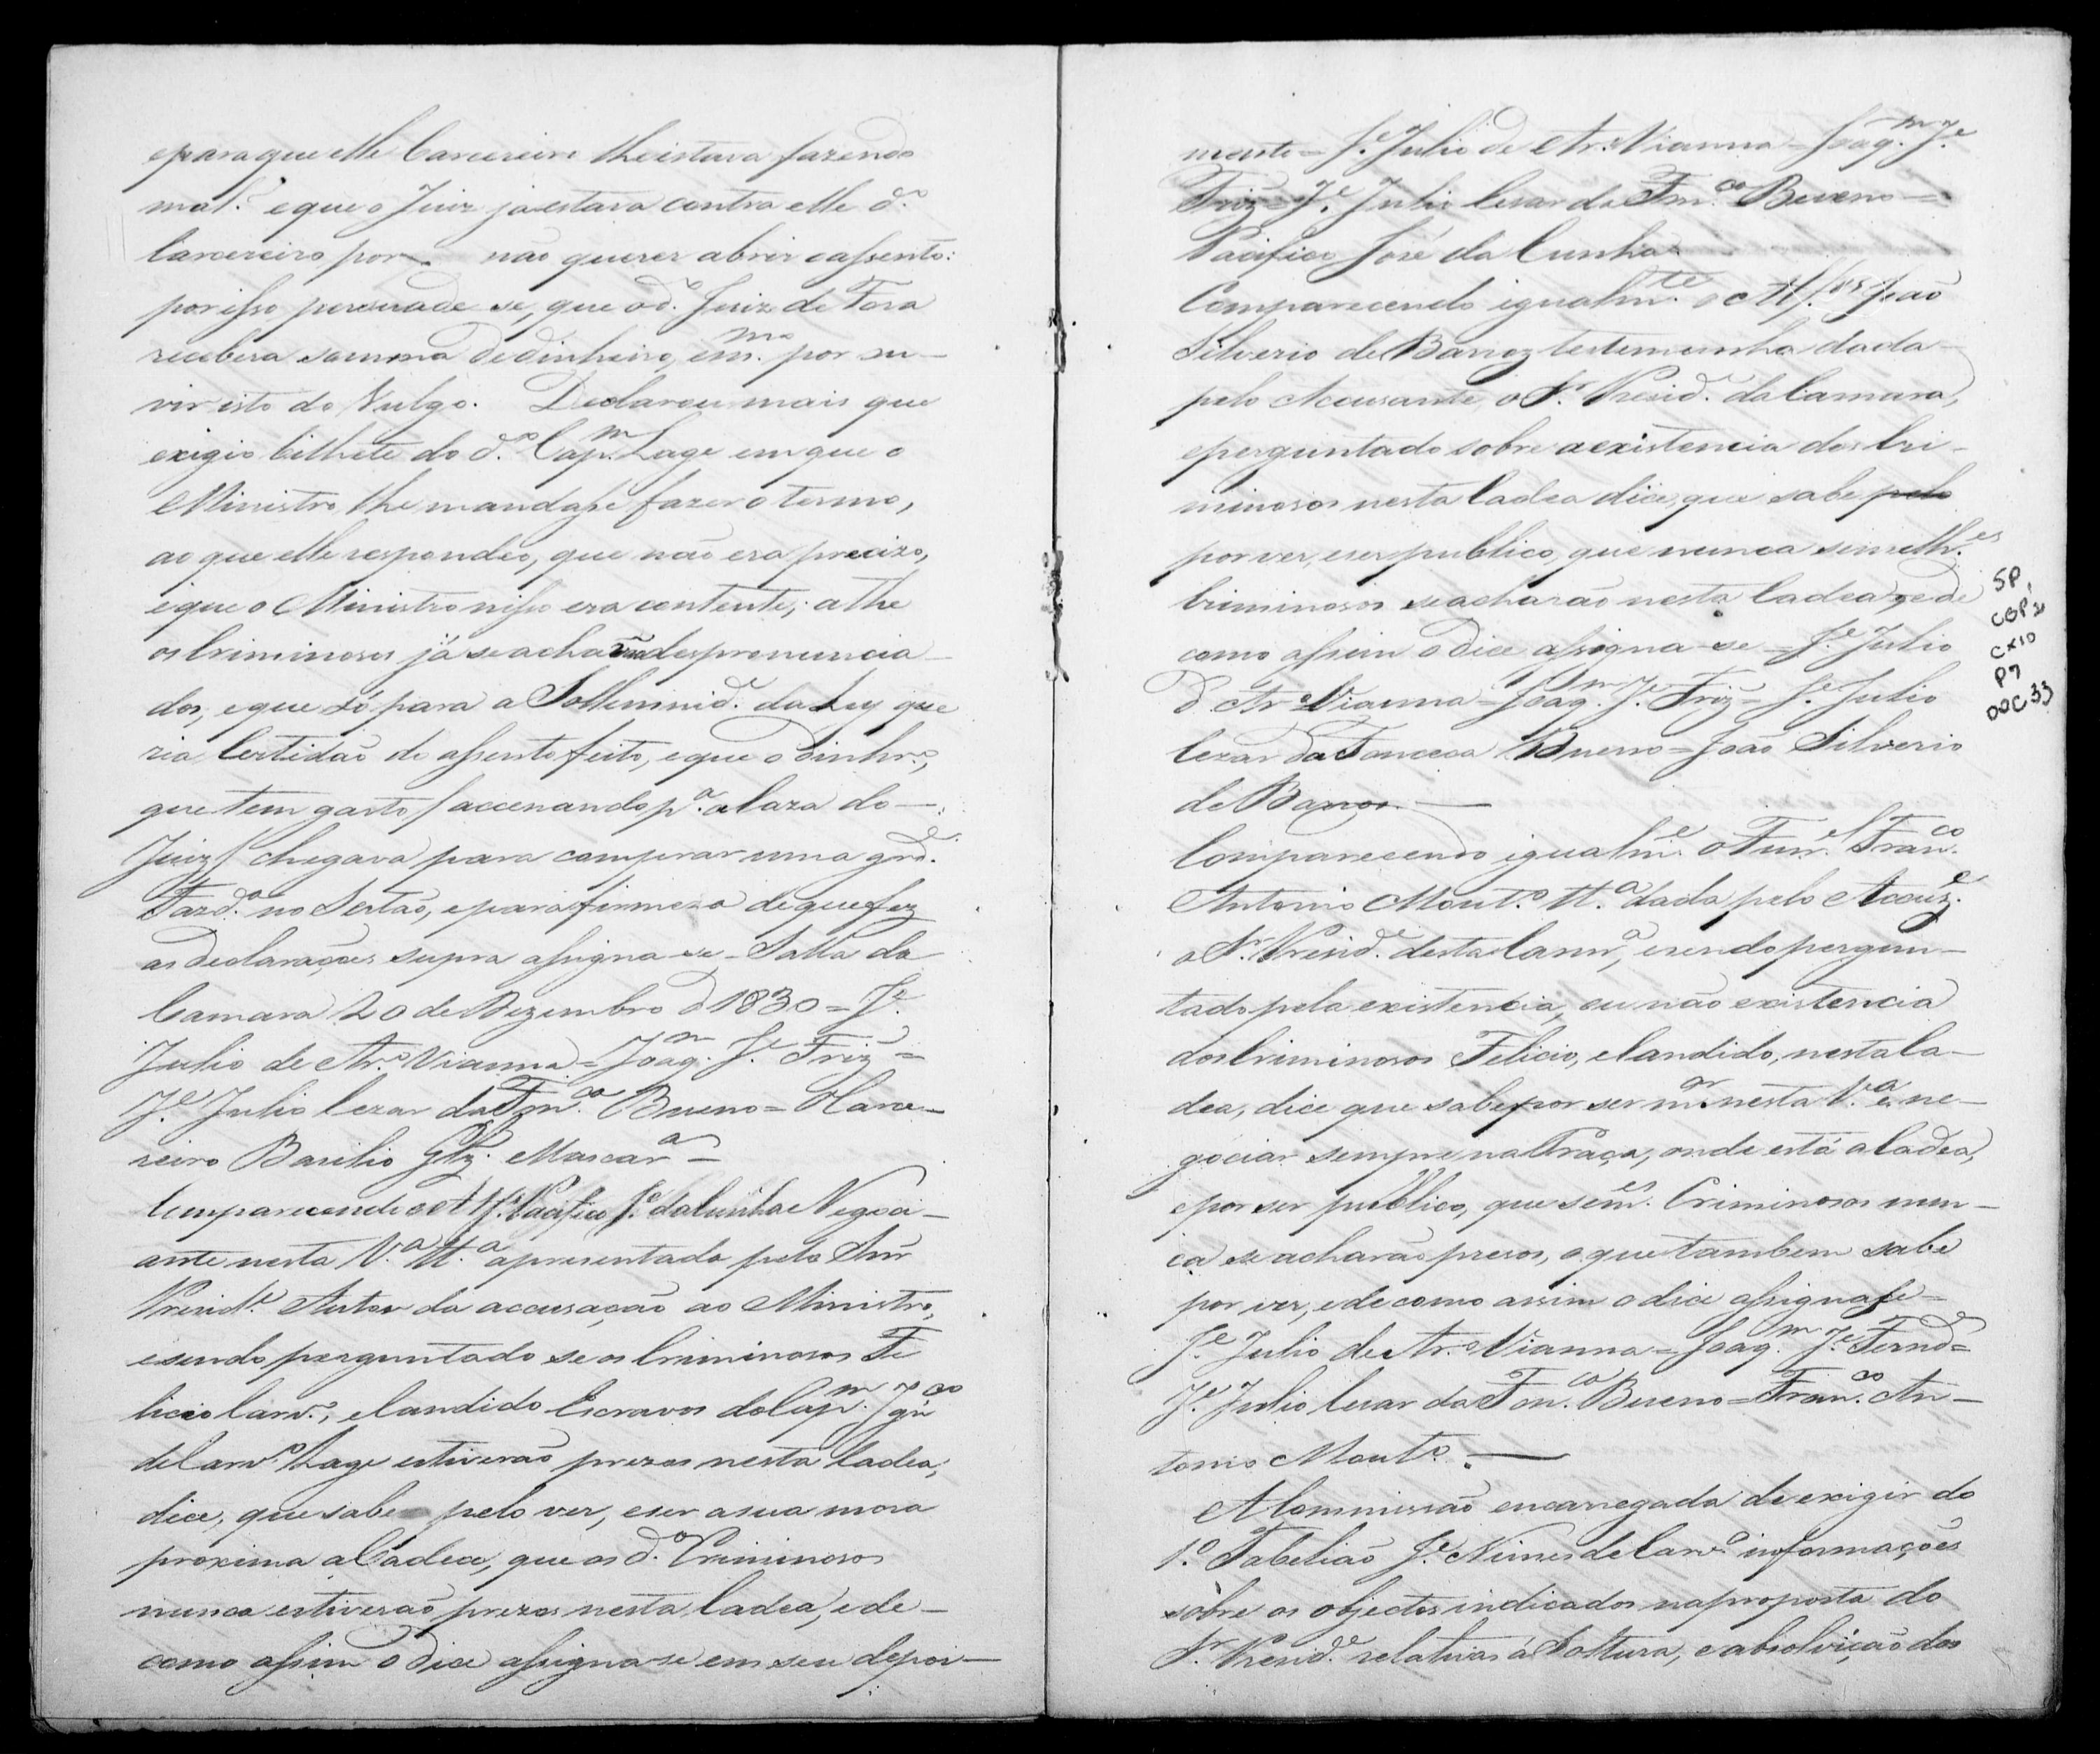 eparaque elle Carcereiro lheistava fazendo
mal. eque o Juiz jaestava contra elle d.o
Carcereiro por não querer abrir oassento:
porisso persuade se, que od.o Juiz de Fora
recebera somma dedinheiro, em.mo por ou-
vir isto do Vulgo. Declarou mais que
exigio bilhete do d.o Cap.m Lage emque o
Ministro lhe mandasse fazer o termo,
ao que elle respondeo, que não era precizo,
eque o Ministro nisso era contente, athe
os Criminosos já seachavão despronuncia-
dos, eque só para a Sollemnid.e da Ley que
ria Certidão do assento feito, eque o dinhr.o,
que tem gasto /accenando p.a aCaza do
Juiz/ chegava para comprar uma grd.e
Fazd.a no Sertão, epara firmeza dequefez
as declarações supra assigna se - Salla da
Camara 20 de Dezembro d 1830 = J.e
Julio de Ar.o Vianna = Joaq.m J.e Friz =
J.e Julio Cezar daFon.ca Bueno = Carce-
reiro Basilio Glz. Mascar.a
Comparecendo o Alf. Pacifico J.e daCunha Negoci-
ante nesta V.a tt.a apresentado pelo Snr
Prezid.e Autor da accusação ao Ministro,
esendo perguntado se os Criminosos Fe
licio Carv.o, eCandido Escravos doCap.m Ign.co
deCarv.o Lage estiverão prezos nesta Cadea,
dice, que sabe pelo ver, eser asua mora
proxima aCadea, que os d.os Criminosos
nunca estiverão prezos nesta Cadea, ede-
como assim o dice assigna-se em seu depoi-
mento = J.e Julio de Ar.o Vianna = Joaq.m J.e
Friz = J.e Julio Cesar da Fon.ca Bueno =
Pacifico José da Cunha.
Comparecendo igualm.te o Alf.es João
Silverio de Barros testemunha dada
pelo Accusante o S.r Presid.e da Camara,
eperguntado sobre aexistencia dos Cri-
minosos nesta Cadea dice, que sabe pelo
por ver, eser publico, que nunca simelh.es
Criminosos seacharão nesta Cadea, ede
como assim o dice assigna-se = J.e Julio
D Ar.o Vianna = Joaq.m J.e Friz = J.e Julio
Cezar da Fonceca Bueno = João Silverio
de Barros.
Comparecendo igualm.e o Fur.el Fran.co
Antonio Mont.o tt.a dada pelo Accuz.e
o S.r Presid.e desta Camr.a, esendo pergun-
tado pela existencia, ou não existencia
dos Criminosos Felicio, eCandido, nesta Ca-
dea, dice que sabe por ser m.or nesta V.a e ne-
gociar sempre na Praça, onde está a Cadea,
epor ser publico, que sem.es Criminosos nun-
ca se acharão presos, o que tambem sabe
por ver, ede como assim o dice assigna se =
J.e Julio de Ar.o Vianna = Joaq.m J.e Fernd.e =
J.e Julio Cesar da Fon.ca Bueno = Fran.co An-
tonio Mont.o
A Commissão encarregada de exigir do
1.o Tabelião J.e Nunes de Carv.o informações
sobre os objectos indicados na proposta do
S.r Presid.e relativas á Soltura, e absolvição dos
SP,
CGP
CX10
P7
DOC 33